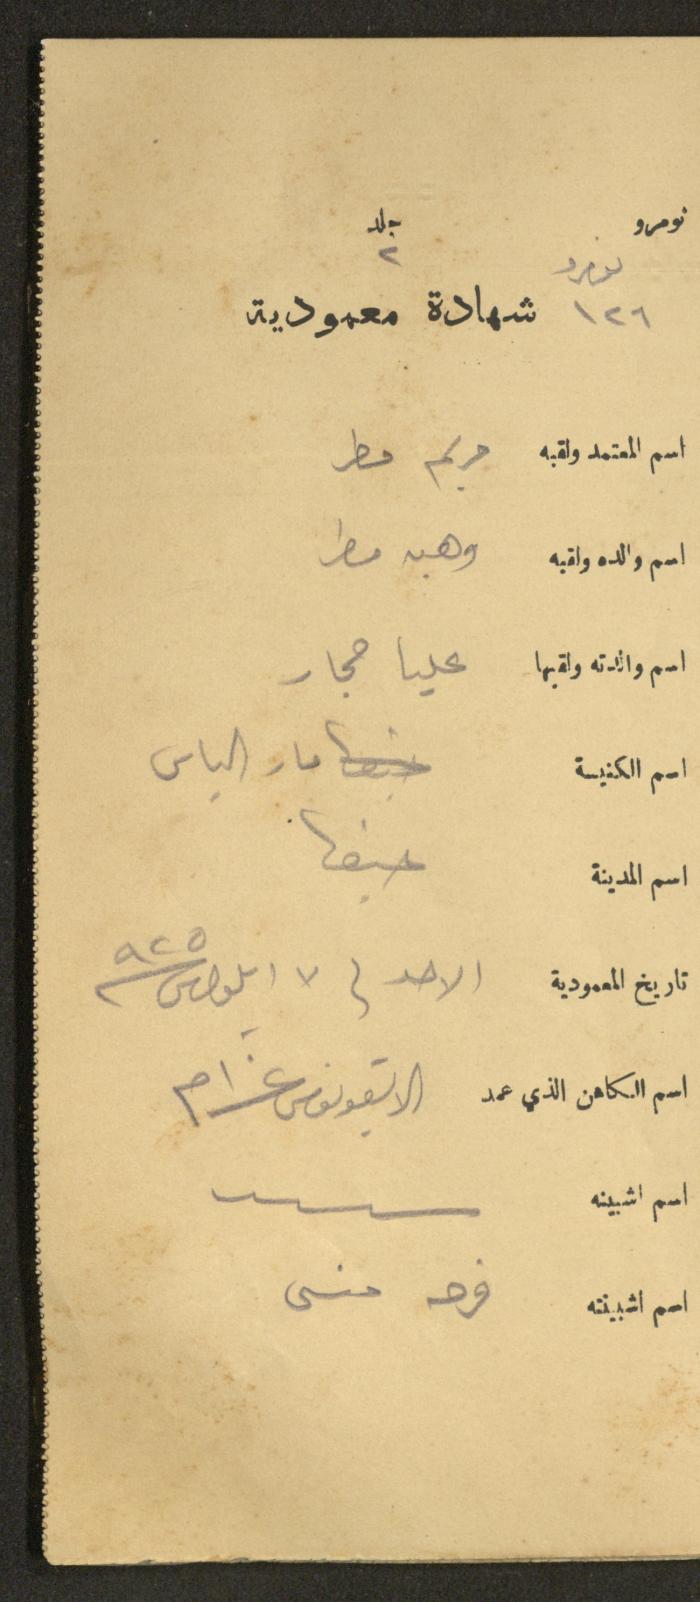 نومرو جلد
نومرو ٢
١٢٦ شهادة معمودية
اسم المعتمد ولقبه مريم مطر
اسم والده ولقبه وهبه مطر
اسم والدته ولقبها عليا حجار
اسم الكنيسة حيفا مار الياس
اسم المدينة حيفا
تاريخ المعمودية الاحد في ٧ ٩٢٥
اسم الكاهن الذي عمد
اسم اشبينه
اسم اشبينته فرحه منسى